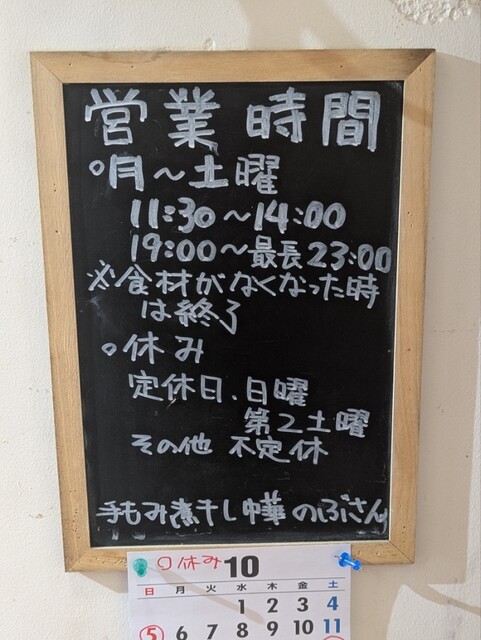 営業時間
○月〜土曜
11:30〜14:00
19:00〜最長23:00
※食材がなくなった時
は終了
○休み
定休日、日曜
第2土曜
その他 不定休
手もみ煮干し中華 のぶさん
○休み 10
日 月 火 水 木 金 土
1 2 3 4
5 6 7 8 9 10 11